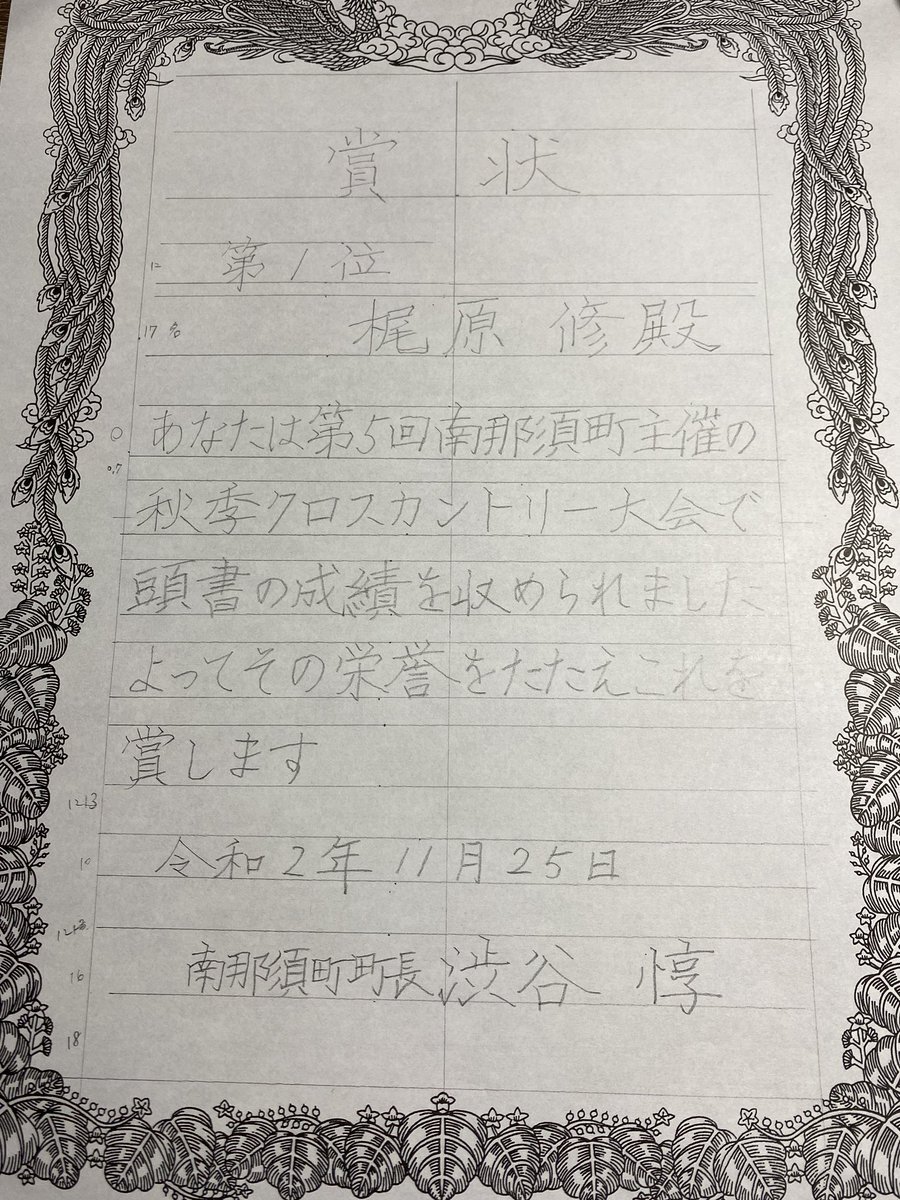 賞 状
12 第1位
17 名 梶原 修 殿
0 あなたは第5回南那須町主催の
0.7
秋季クロスカントリー大会で
頭書の成績を収められました
よってその栄誉をたたえこれを
賞します
10 令和2年11月25日
16 南那須町町長 渋谷 惇
18